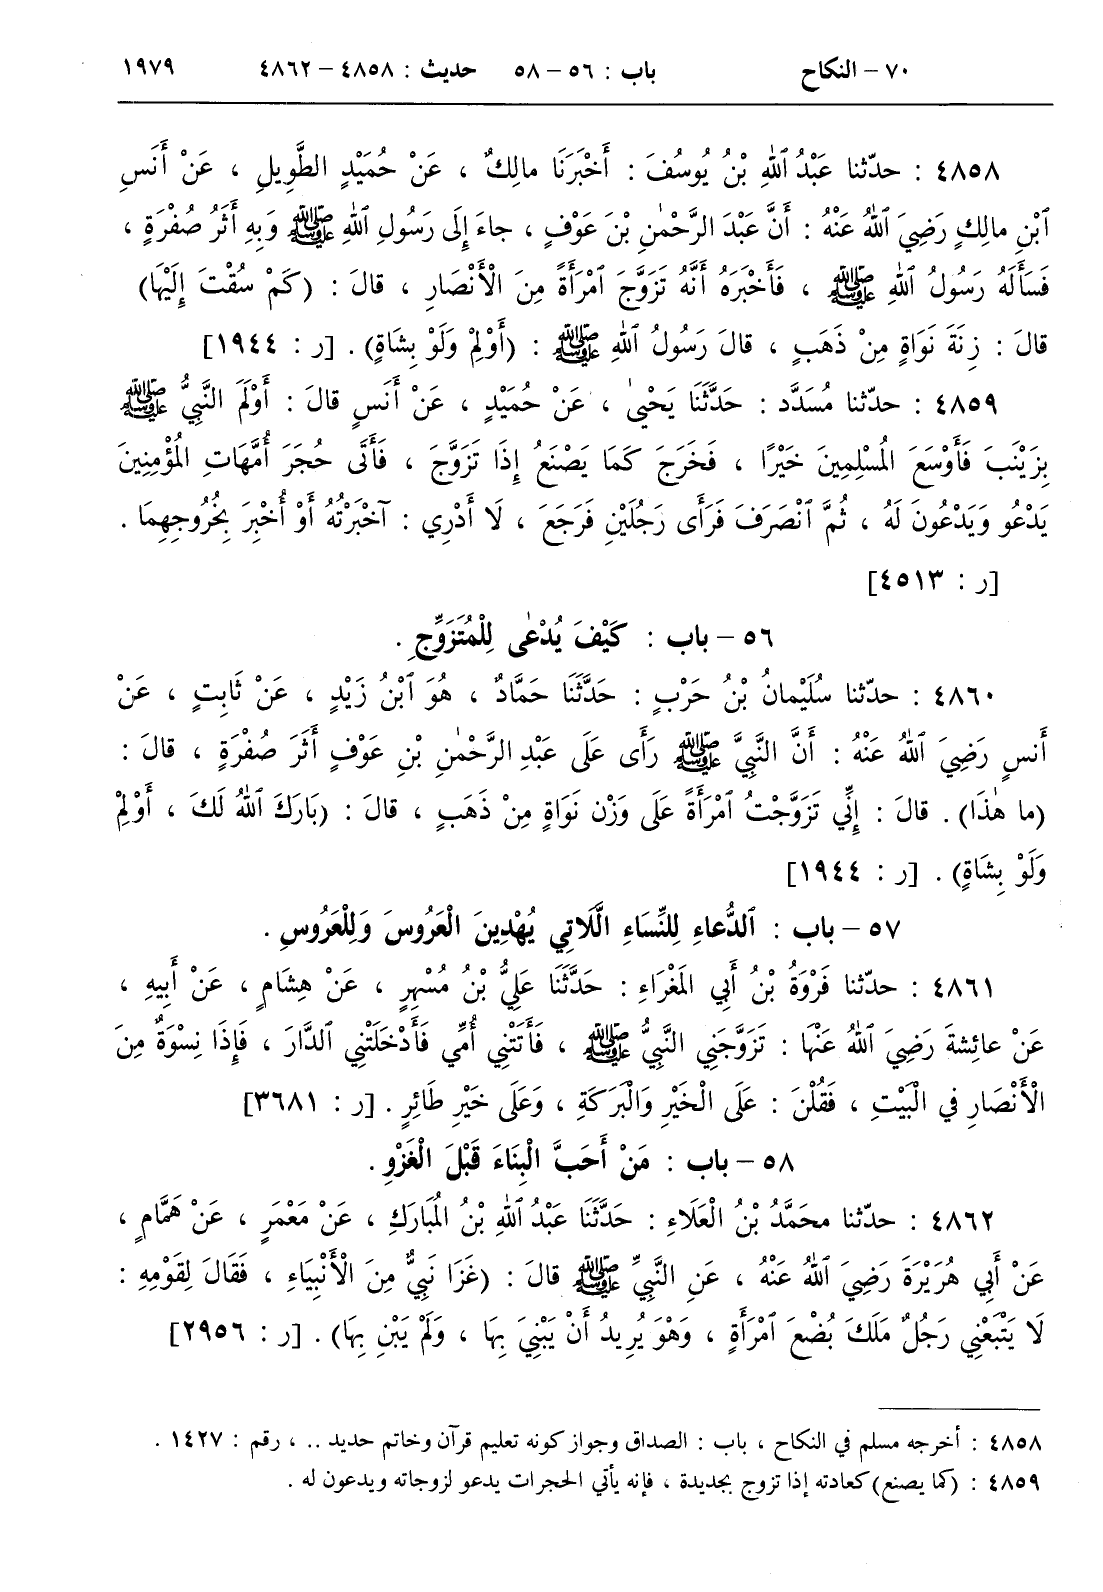 ٧٠ – النكاح باب : ٥٦ – ٥٨ حديث : ٤٨٥٨ – ٤٨٦٢ ١٩٧٩
٤٨٥٨ : حدّثنا عَبْدُ ٱللهِ بْنُ يُوسُفَ : أَخْبَرَنَا مالِكٌ ، عَنْ حُمَيْدٍ الطَّوِيلِ ، عَنْ أَنَسِ
ٱبْنِ مالِكٍ رَضِيَ ٱللهُ عَنْهُ : أَنَّ عَبْدَ الرَّحْمٰنِ بْنَ عَوْفٍ ، جاءَ إِلَى رَسُولِ ٱللهِ ﷺ وَبِهِ أَثَرُ صُفْرَةٍ ،
فَسَأَلَهُ رَسُولُ ٱللهِ ﷺ ، فَأَخْبَرَهُ أَنَّهُ تَزَوَّجَ ٱمْرَأَةً مِنَ الْأَنْصَارِ ، قالَ : (كَمْ سُقْتَ إِلَيْهَا)
قالَ : زِنَةَ نَوَاةٍ مِنْ ذَهَبٍ ، قالَ رَسُولُ ٱللهِ ﷺ : (أَوْلِمْ وَلَوْ بِشَاةٍ) . [ر : ١٩٤٤]
٤٨٥٩ : حدّثنا مُسَدَّد : حَدَّثَنَا يَحْيىٰ ، عَنْ حُمَيْدٍ ، عَنْ أَنَسٍ قالَ : أَوْلَمَ النَّبِيُّ ﷺ
بِزَيْنَبَ فَأَوْسَعَ الْمُسْلِمِينَ خَيْرًا ، فَخَرَجَ كَمَا يَصْنَعُ إِذَا تَزَوَّجَ ، فَأَتَى حُجَرَ أُمَّهَاتِ الْمُؤْمِنِينَ
يَدْعُو وَيَدْعُونَ لَهُ ، ثُمَّ ٱنْصَرَفَ فَرَأَى رَجُلَيْنِ فَرَجَعَ ، لَا أَدْرِي : آخْبَرْتُهُ أَوْ أُخْبِرَ بِخُرُوجِهِمَا .
[ر : ٤٥١٣]
٥٦ – باب : كَيْفَ يُدْعٰى لِلْمُتَزَوِّجِ .
٤٨٦٠ : حدّثنا سُلَيْمانُ بْنُ حَرْبٍ : حَدَّثَنَا حَمَّادٌ ، هُوَ ٱبْنُ زَيْدٍ ، عَنْ ثَابِتٍ ، عَنْ
أَنسٍ رَضِيَ ٱللهُ عَنْهُ : أَنَّ النَّبِيَّ ﷺ رَأَى عَلَى عَبْدِ الرَّحْمٰنِ بْنِ عَوْفٍ أَثَرَ صُفْرَةٍ ، قالَ :
(ما هٰذَا) . قالَ : إِنِّي تَزَوَّجْتُ ٱمْرَأَةً عَلَى وَزْنِ نَوَاةٍ مِنْ ذَهَبٍ ، قالَ : (بَارَكَ ٱللهُ لَكَ ، أَوْلِمْ
وَلَوْ بِشَاةٍ) . [ر : ١٩٤٤]
٥٧ – باب : ٱلدُّعاءِ لِلنِّسَاءِ الَّلَاتِي يُهْدِينَ الْعَرُوسَ وَلِلْعَرُوسِ .
٤٨٦١ : حدّثنا فَرْوَةُ بْنُ أَبِي المَغْرَاءِ : حَدَّثَنَا عَلِيُّ بْنُ مُسْهِرٍ ، عَنْ هِشَامٍ ، عَنْ أَبِيهِ ،
عَنْ عائِشةَ رَضِيَ ٱللهُ عَنْهَا : تَزَوَّجَنِي النَّبِيُّ ﷺ ، فَأَتَتْنِي أُمِّي فَأَدْخَلَتْنِي ٱلدَّارَ ، فَإِذَا نِسْوَةٌ مِنَ
الْأَنْصَارِ فِي الْبَيْتِ ، فَقُلْنَ : عَلَى الْخَيْرِ وَالْبَرَكَةِ ، وَعَلَى خَيْرِ طَائِرٍ . [ر : ٣٦٨١]
٥٨ – باب : مَنْ أَحَبَّ الْبِنَاءَ قَبْلَ الْغَزْوِ .
٤٨٦٢ : حدّثنا محَمَّدُ بْنُ الْعَلَاءِ : حَدَّثَنَا عَبْدُ ٱللهِ بْنُ المُبَارَكِ ، عَنْ مَعْمَرٍ ، عَنْ هَمَّامٍ ،
عَنْ أَبِي هُرَيْرَةَ رَضِيَ ٱللهُ عَنْهُ ، عَنِ النَّبِيِّ ﷺ قالَ : (غَزَا نَبِيٌّ مِنَ الْأَنْبِيَاءِ ، فَقَالَ لِقَوْمِهِ :
لَا يَتْبَعْنِي رَجُلٌ مَلَكَ بُضْعَ ٱمْرَأَةٍ ، وَهْوَ يُرِيدُ أَنْ يَبْنِيَ بِهَا ، وَلَمْ يَبْنِ بِهَا) . [ر : ٢٩٥٦]
٤٨٥٨ : أخرجه مسلم في النكاح ، باب : الصداق وجواز كونه تعليم قرآن وخاتم حديد .. ، رقم : ١٤٢٧ .
٤٨٥٩ : (كما يصنع) كعادته إذا تزوج بجديدة ، فإنه يأتي الحجرات يدعو لزوجاته ويدعون له .